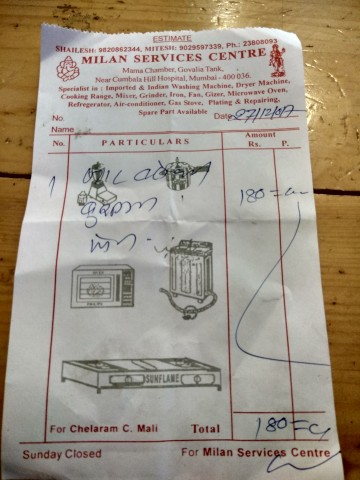 ESTIMATE
SHAILESH: 9820862344, MITESH: 9029597339, Ph.: 23808093
MILAN SERVICES CENTRE
Mama Chamber, Govalia Tank,
Near Cumbala Hill Hospital, Mumbai - 400 036.
Specialist in : Imported & Indian Washing Machine, Dryer Machine,
Cooking Range, Mixer, Grinder, Iron, Fan, Gizer, Microwave Oven,
Refregerator, Air-conditioner, Gas Stove, Plating & Repairing,
Spare Part Available
No. Date 27/12/17
Name
No. PARTICULARS Amount
Rs. P.
1 180=00
SUNFLAME
For Chelaram C. Mali Total 180=00
Sunday Closed For Milan Services Centre